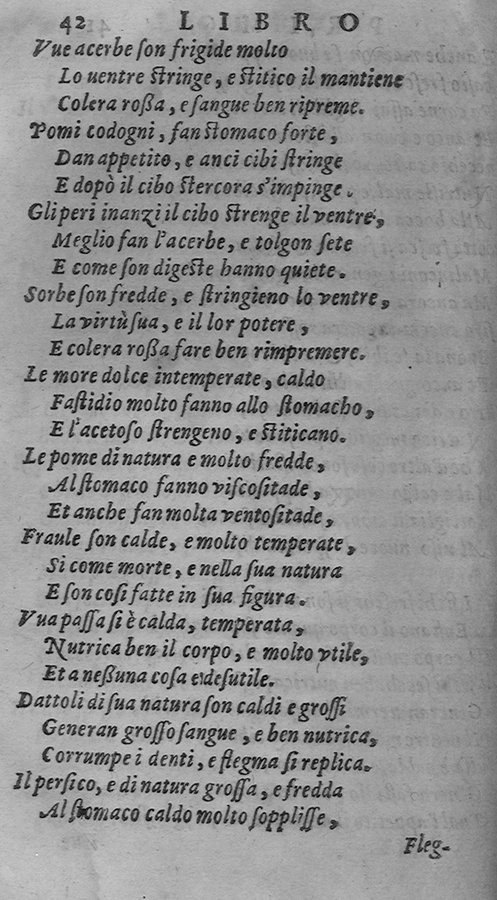 42 LIBRO
Vue acerbe ſon frigide molto
Lo uentre ſtringe, e ſtitico il mantiene
Colera roßa, e ſangue ben ripreme.
Pomi codogni, fan ſtomaco forte,
Dan appetito, e anci cibi ſtringe
E dopò il cibo ſtercora s'impinge.
Gli peri inanzi il cibo ſtrenge il ventre,
Meglio fan l'acerbe, e tolgon ſete
E come ſon digeſte hanno quiete.
Sorbe ſon fredde, e ſtringieno lo ventre,
La virtù sua, e il lor potere,
E colera roßa fare ben rimpremere.
Le more dolce intemperate, caldo
Faſtidio molto fanno allo ſtomacho,
E l'acetoſo ſtrengeno, e ſtiticano.
Le pome di natura e molto fredde,
Al ſtomaco fanno viſcoſitade,
Et anche fan molta ventoſitade,
Fraule ſon calde, e molto temperate,
Si come morte, e nella ſua natura
E ſon coſi fatte in ſua figura.
Vua paſſa ſi è calda, temperata,
Nutrica ben il corpo, e molto vtile,
Et a neßuna coſa e deſutile.
Dattoli di ſua natura ſon caldi e groſſi
Generan groſſo ſangue, e ben nutrica,
Corrumpe i denti, e flegma ſi replica.
Il perſico, e di natura groſſa, e fredda
Al ſtomaco caldo molto ſoppliſſe,
Fleg-